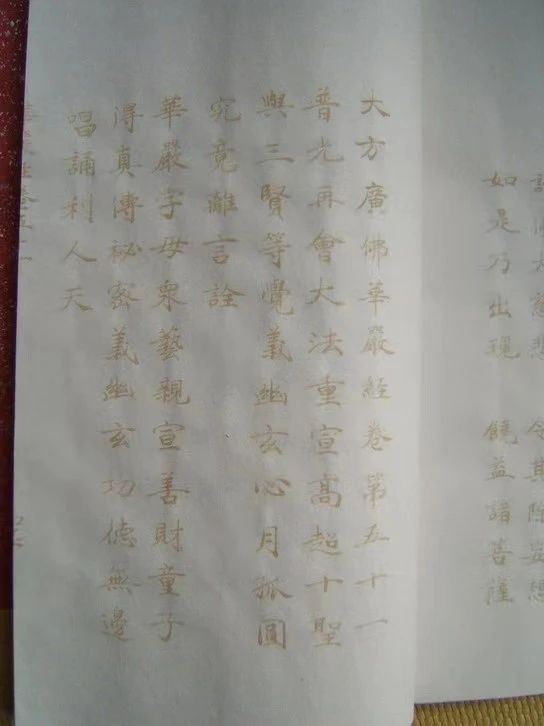 如是乃出現　饒益諸菩薩
大方廣佛華嚴經卷第五十一
普光再會大法重宣高超十聖
與三賢等覺義幽玄心月孤圓
究竟離言詮
華嚴字母眾藝親宣善財童子
得真傳祕密義幽玄功德無邊
唱誦利人天